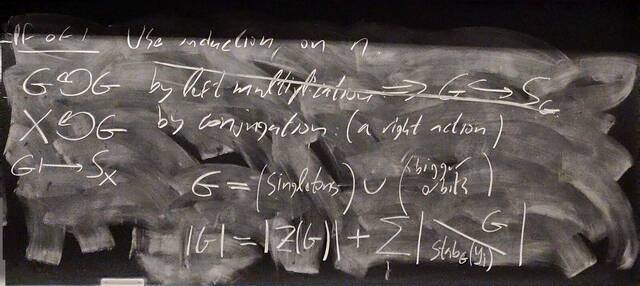 Pf of 1 Use induction, on n.
G ↺ G by left multiplication ⇒ G ↪ S_G
X ↺ G by conjugation: (a right action)
G ⟼ S_X
G = (singletons) ∪ (bigger orbits)
|G| = |Z(G)| + Σ_i |G / Stab_G(y_i)|